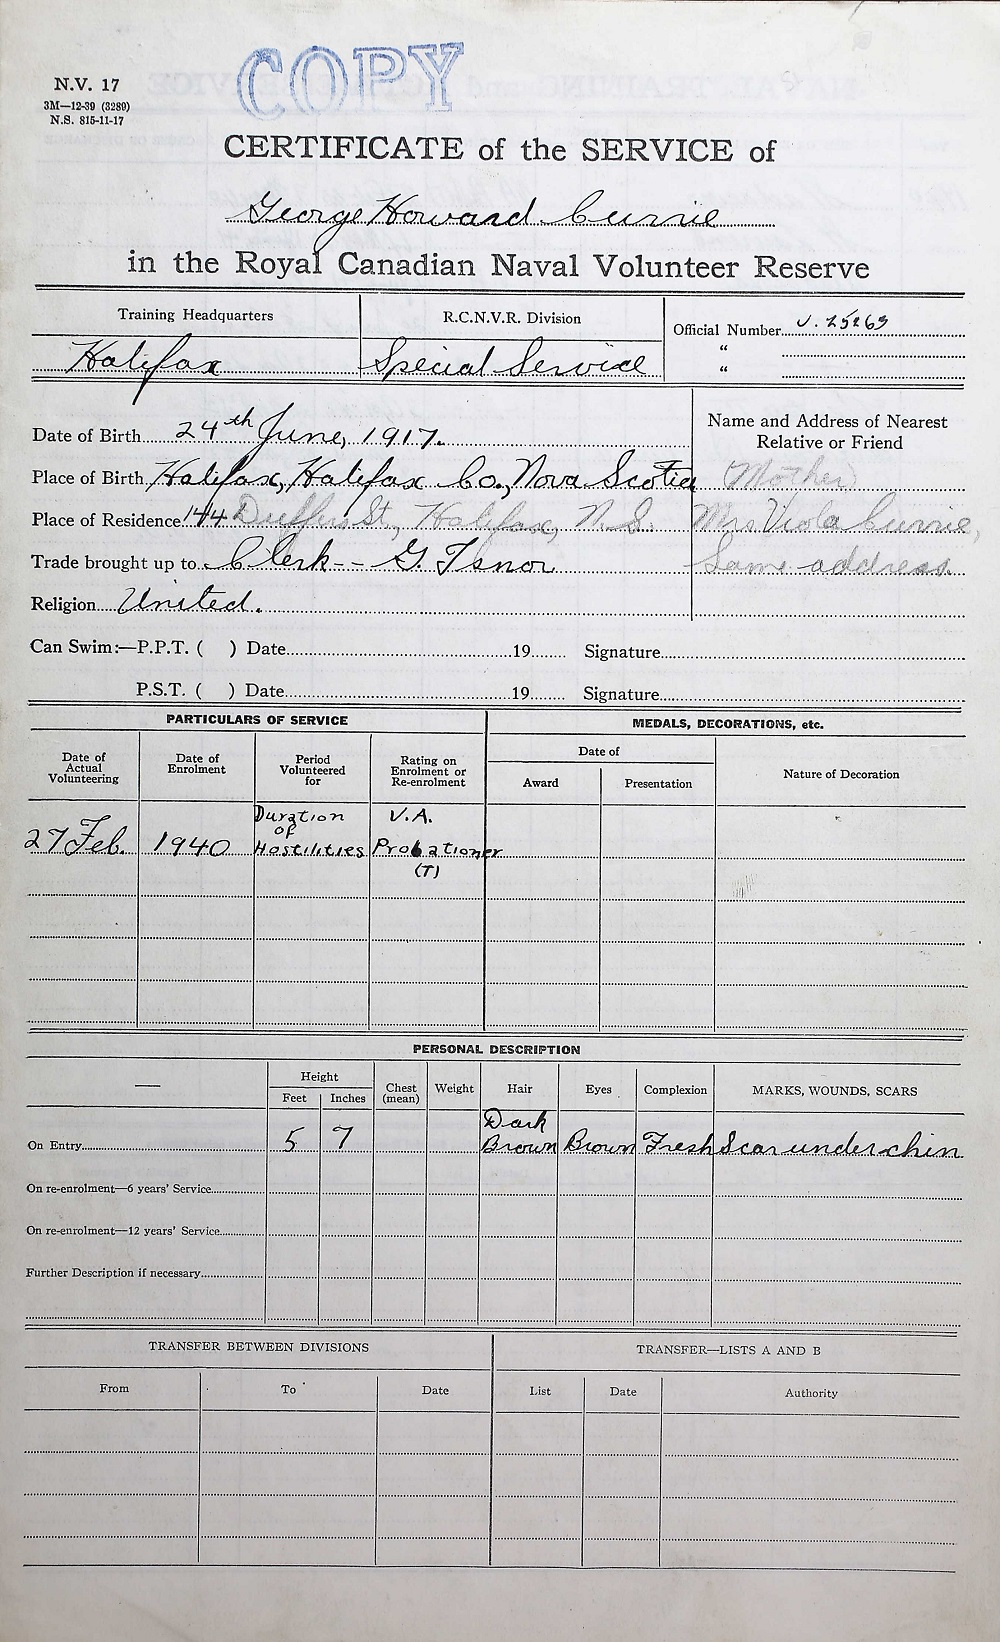 COPY
N.V. 17
3M—12-39 (3289)
N.S. 815-11-17
CERTIFICATE of the SERVICE of
George Howard Currie
in the Royal Canadian Naval Volunteer Reserve
Training Headquarters R.C.N.V.R. Division Official Number V. 25269
Halifax Special Service “
“
Date of Birth 24th June, 1917. Name and Address of Nearest Relative or Friend
Place of Birth Halifax, Halifax Co., Nova Scotia (Mother)
Place of Residence 144 Duffus St., Halifax, N.S. Mrs Viola Currie,
Trade brought up to Clerk -- G. Isnor Same address.
Religion United.
Can Swim:—P.P.T. ( ) Date 19 Signature
P.S.T. ( ) Date 19 Signature
PARTICULARS OF SERVICE MEDALS, DECORATIONS, etc.
Date of Actual Volunteering Date of Enrolment Period Volunteered for Rating on Enrolment or Re-enrolment Date of Nature of Decoration
Award Presentation
27 Feb. 1940 Duration of Hostilities V.A. Probationer (T)
PERSONAL DESCRIPTION
— Height Chest (mean) Weight Hair Eyes Complexion MARKS, WOUNDS, SCARS
Feet Inches
On Entry 5 7 Dark Brown Brown Fresh Scar under chin
On re-enrolment—6 years' Service
On re-enrolment—12 years' Service
Further Description if necessary
TRANSFER BETWEEN DIVISIONS TRANSFER—LISTS A AND B
From To Date List Date Authority